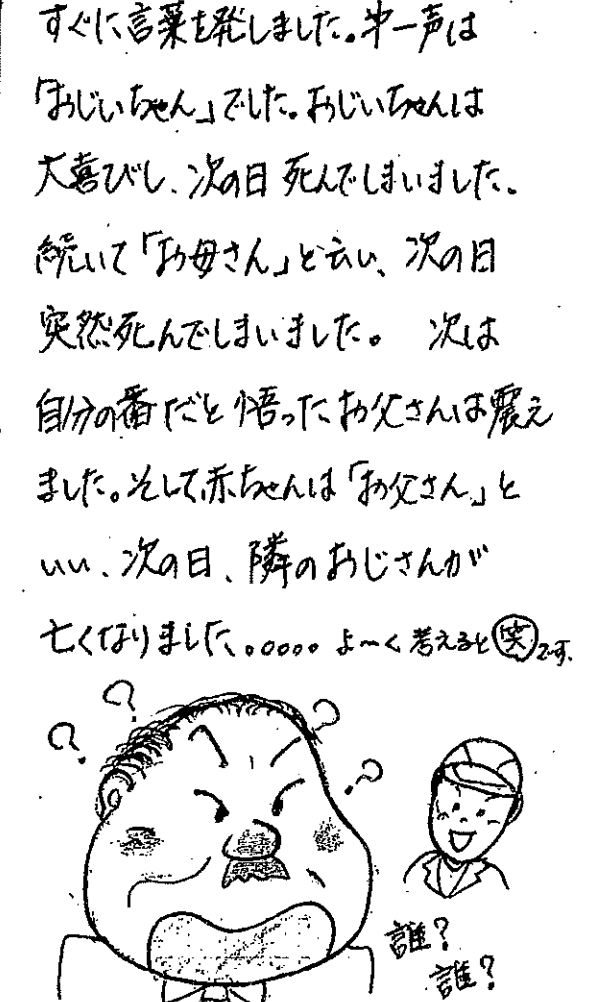 すぐに言葉を発しました。第一声は
「おじいちゃん」でした。おじいちゃんは
大喜びし、次の日 死んでしまいました。
続いて「お母さん」と云い、次の日
突然死んでしまいました。 次は
自分の番だと悟ったお父さんは震え
ました。そして、赤ちゃんは「お父さん」と
いい、次の日、隣のおじさんが
亡くなりました。。。。。よ〜く考えると㊗です。
?
?
?
?
誰?
誰?